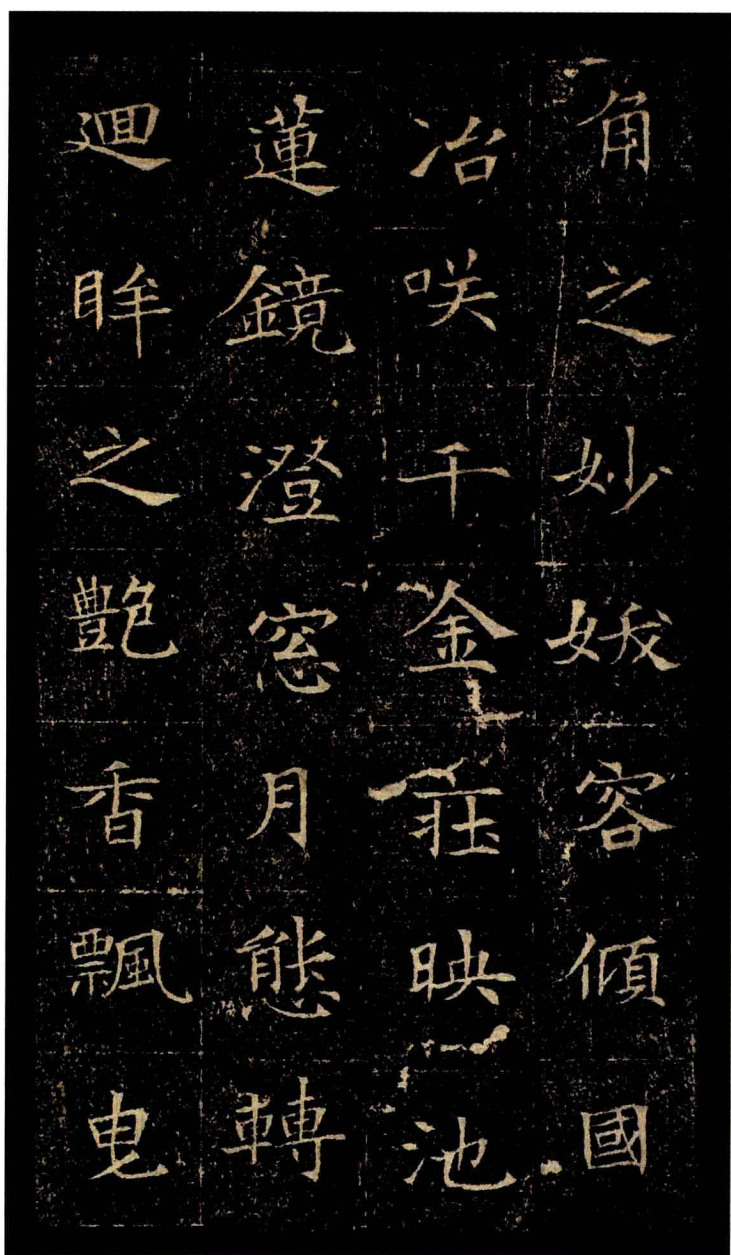 角之妙娥容傾國
冶咲千金莊映池
蓮鏡澄窓月態轉
迴眸之艷香飄曳